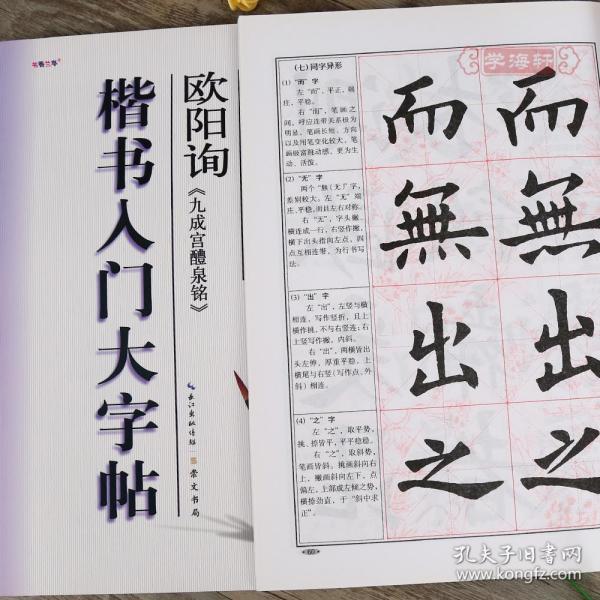 书香兰亭
欧阳询
《九成宫醴泉铭》
楷书入门大字帖
长江出版传媒
崇文书局
学海轩
(七)同字异形
(1)“而”字
左“而”，平正，端
庄，平稳。
右“而”，笔画之
间，呼应连带关系极为
明显，笔画长短、方向
以及用笔变化较大，笔
画极富跳动感，更为生
动、活泼。
(2)“无”字
两个“無(无)”字，
差别较大。左“无”端
庄、平稳，而且左右对称。
右“无”，字头撇、
横连成一行，右竖作撇，
横下出头指向左点，四
点互相连带，为行书写
法。
(3)“出”字
左“出”，左竖与横
相连，写作竖折，且上
横作挑，不与右竖连；右
上竖写作撇，内斜。
右“出”，两横皆出
头左伸，厚重平稳，上
横尾与右竖(写作点、外
斜)相连。
(4)“之”字
左“之”，取平势，
挑、捺皆平，平平稳稳。
右“之”，取斜势，
笔画皆斜。挑画斜向右
上，撇画斜向左下，点
偏左，上部成左倾之势，
横捺劲直，于“斜中求
正”。
而而
無無
出出
之之
60
孔夫子旧书网
www.kongfz.com